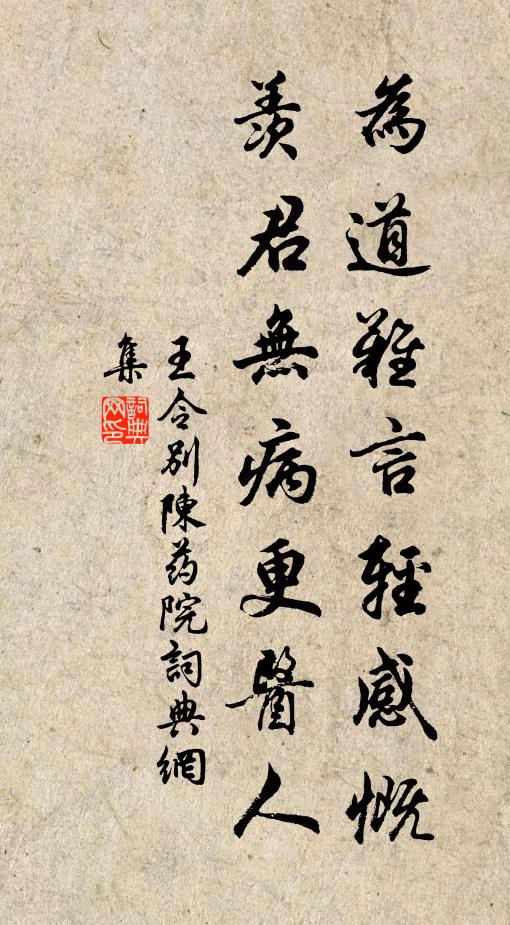 為道難言輕感慨
羨君無病更醫人
王令別陳药院詞典網
集
詞典網印